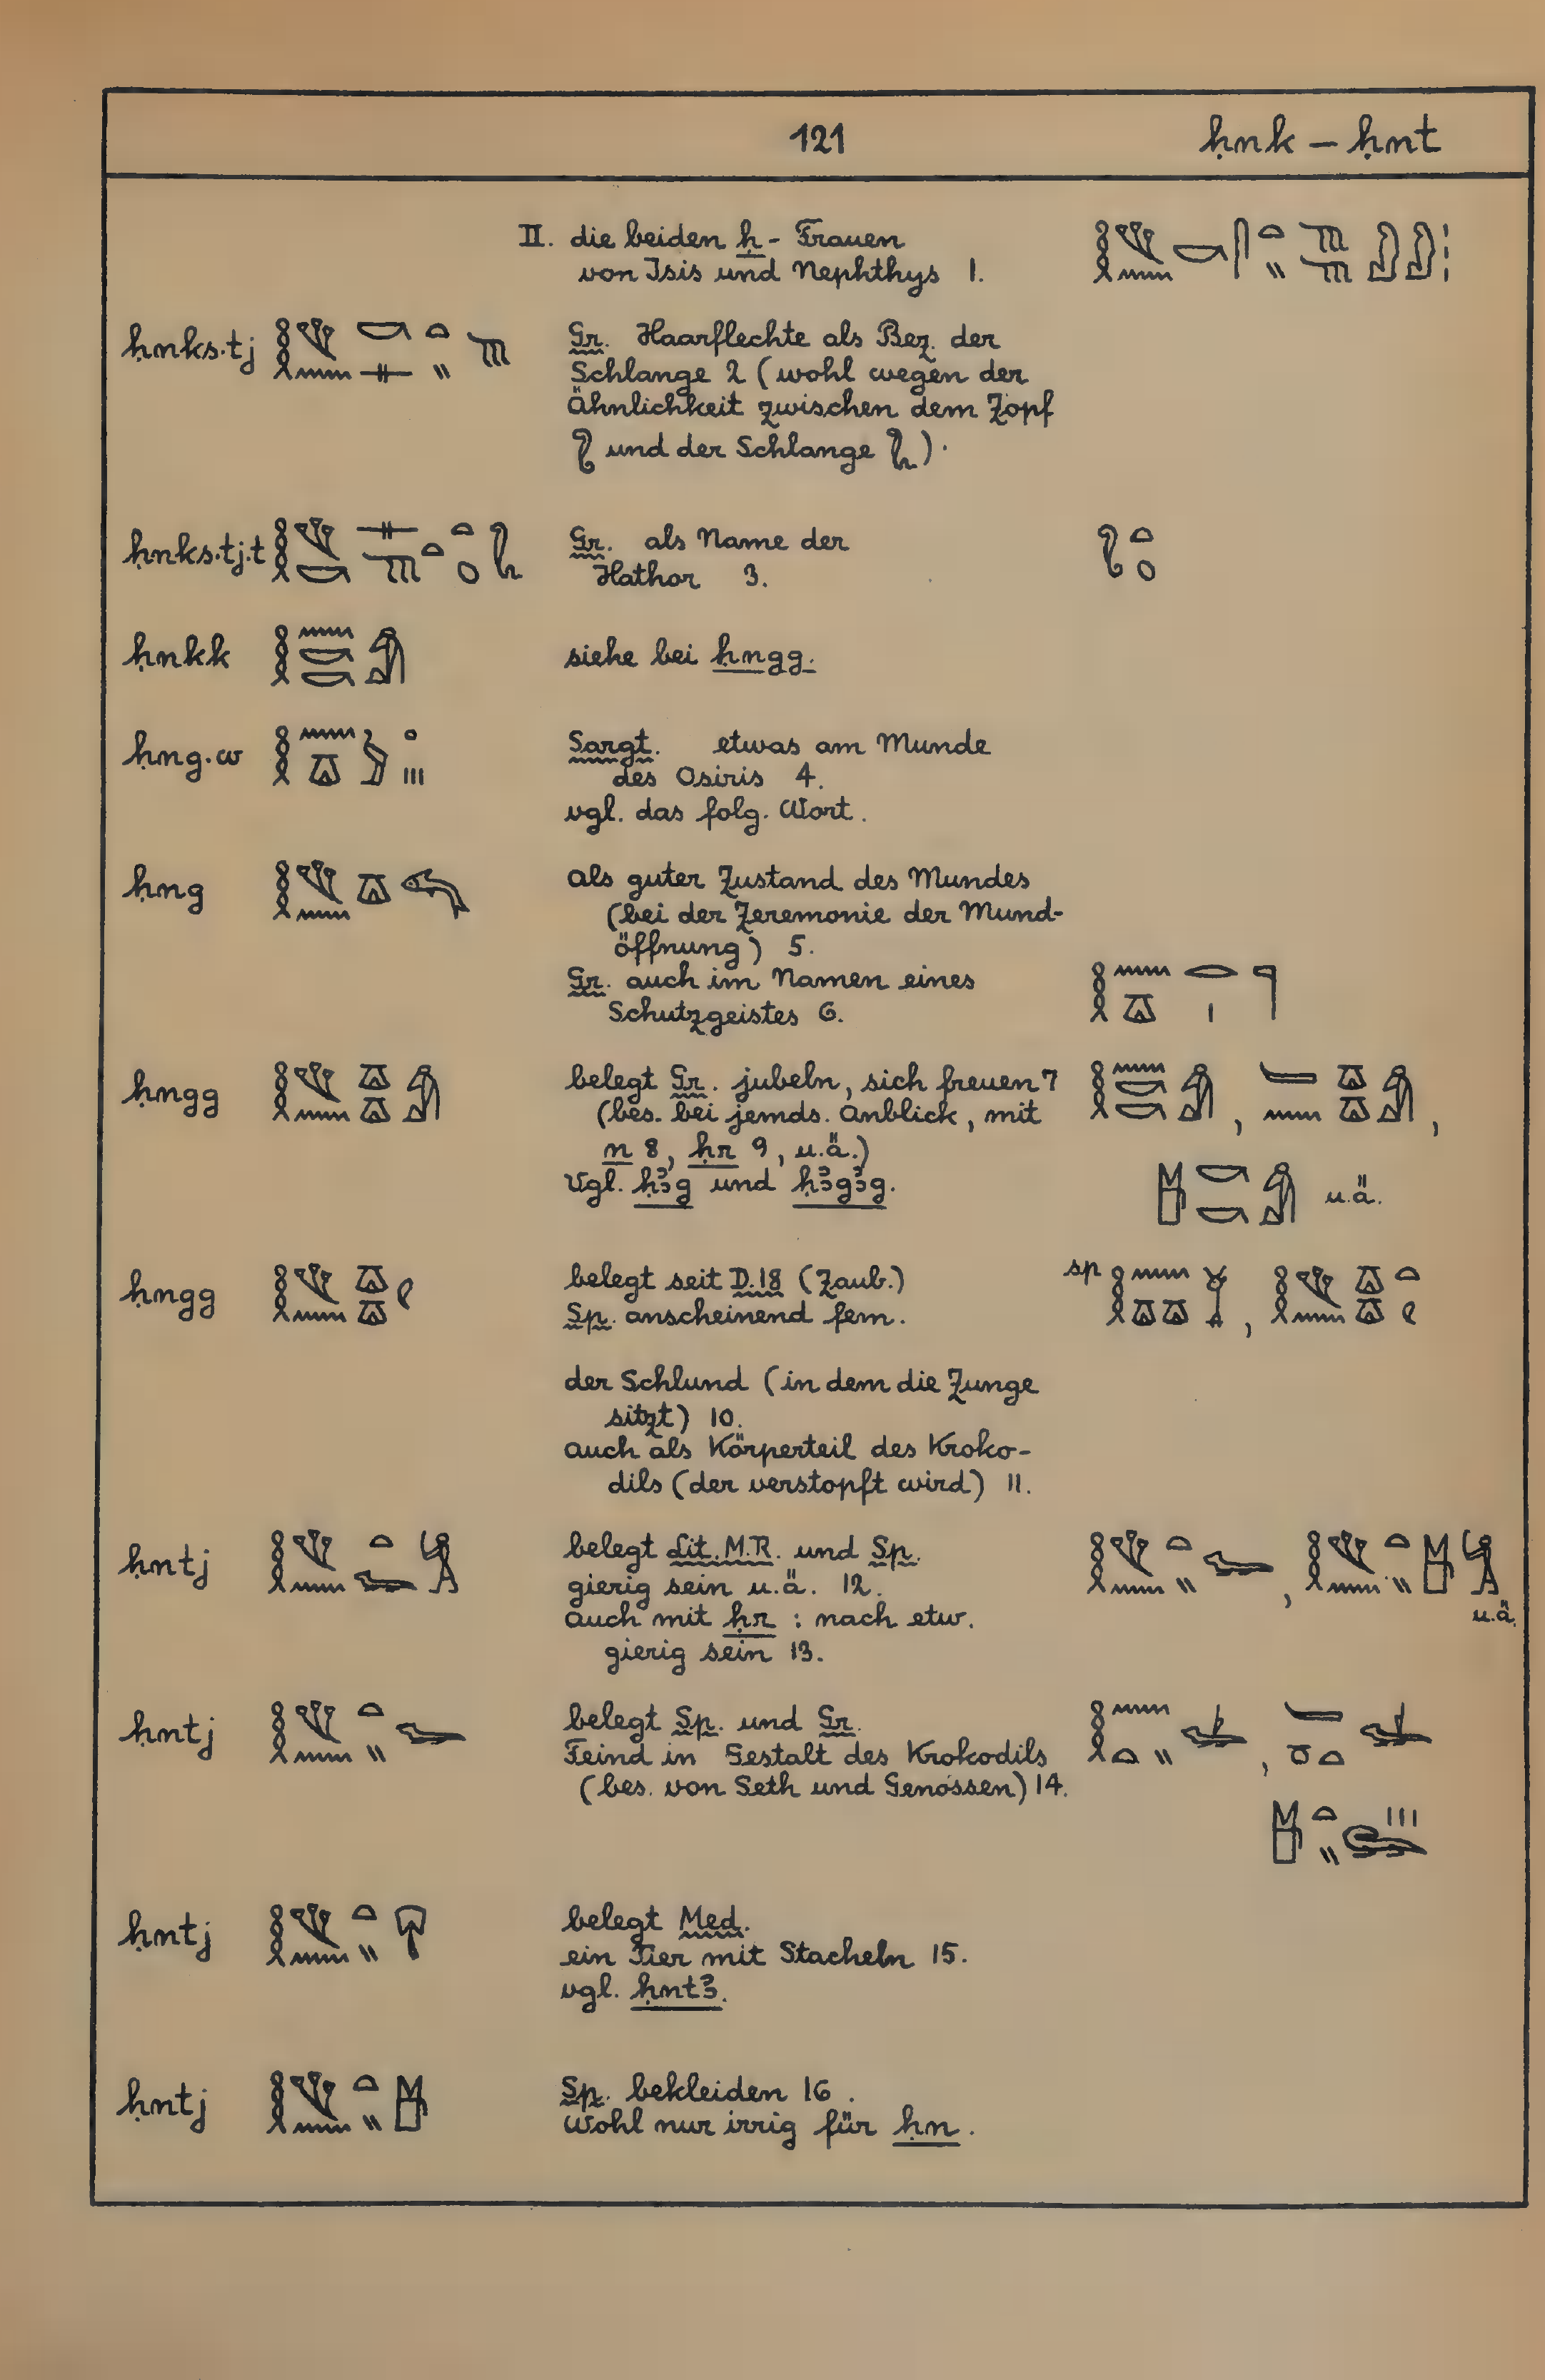 121 ḥnk – ḥnt
II. die beiden ḥ - Frauen
von Isis und Nephthys 1.
ḥnks.tj Gr. Haarflechte als Bez. der
Schlange 2 (wohl wegen der
Ähnlichkeit zwischen dem Zopf
und der Schlange ).
ḥnks.tj.t Gr. als Name der
Hathor 3.
ḥnkk siehe bei ḥngg.
ḥng.w Sargt. etwas am Munde
des Osiris 4.
vgl. das folg. Wort.
ḥng als guter Zustand des Mundes
(bei der Zeremonie der Mund-
öffnung) 5.
Gr. auch im Namen eines
Schutzgeistes 6.
ḥngg belegt Gr. jubeln, sich freuen 7
(bes. bei jemds. Anblick, mit
n 8, ḥr 9, u.ä.)
Vgl. ḥꜣg und ḥꜣgꜣg. u.ä.
ḥngg belegt seit D.18 (Zaub.) Sp
Sp. anscheinend fem.
der Schlund (in dem die Zunge
sitzt) 10.
auch als Körperteil des Kroko-
dils (der verstopft wird) 11.
ḥntj belegt Lit. M.R. und Sp.
gierig sein u.ä. 12.
auch mit ḥr : nach etw. u.ä.
gierig sein 13.
ḥntj belegt Sp. und Gr.
Feind in Gestalt des Krokodils
(bes. von Seth und Genossen) 14.
ḥntj belegt Med.
ein Tier mit Stacheln 15.
vgl. ḥntꜣ.
ḥntj Sp. bekleiden 16.
Wohl nur irrig für ḥn.